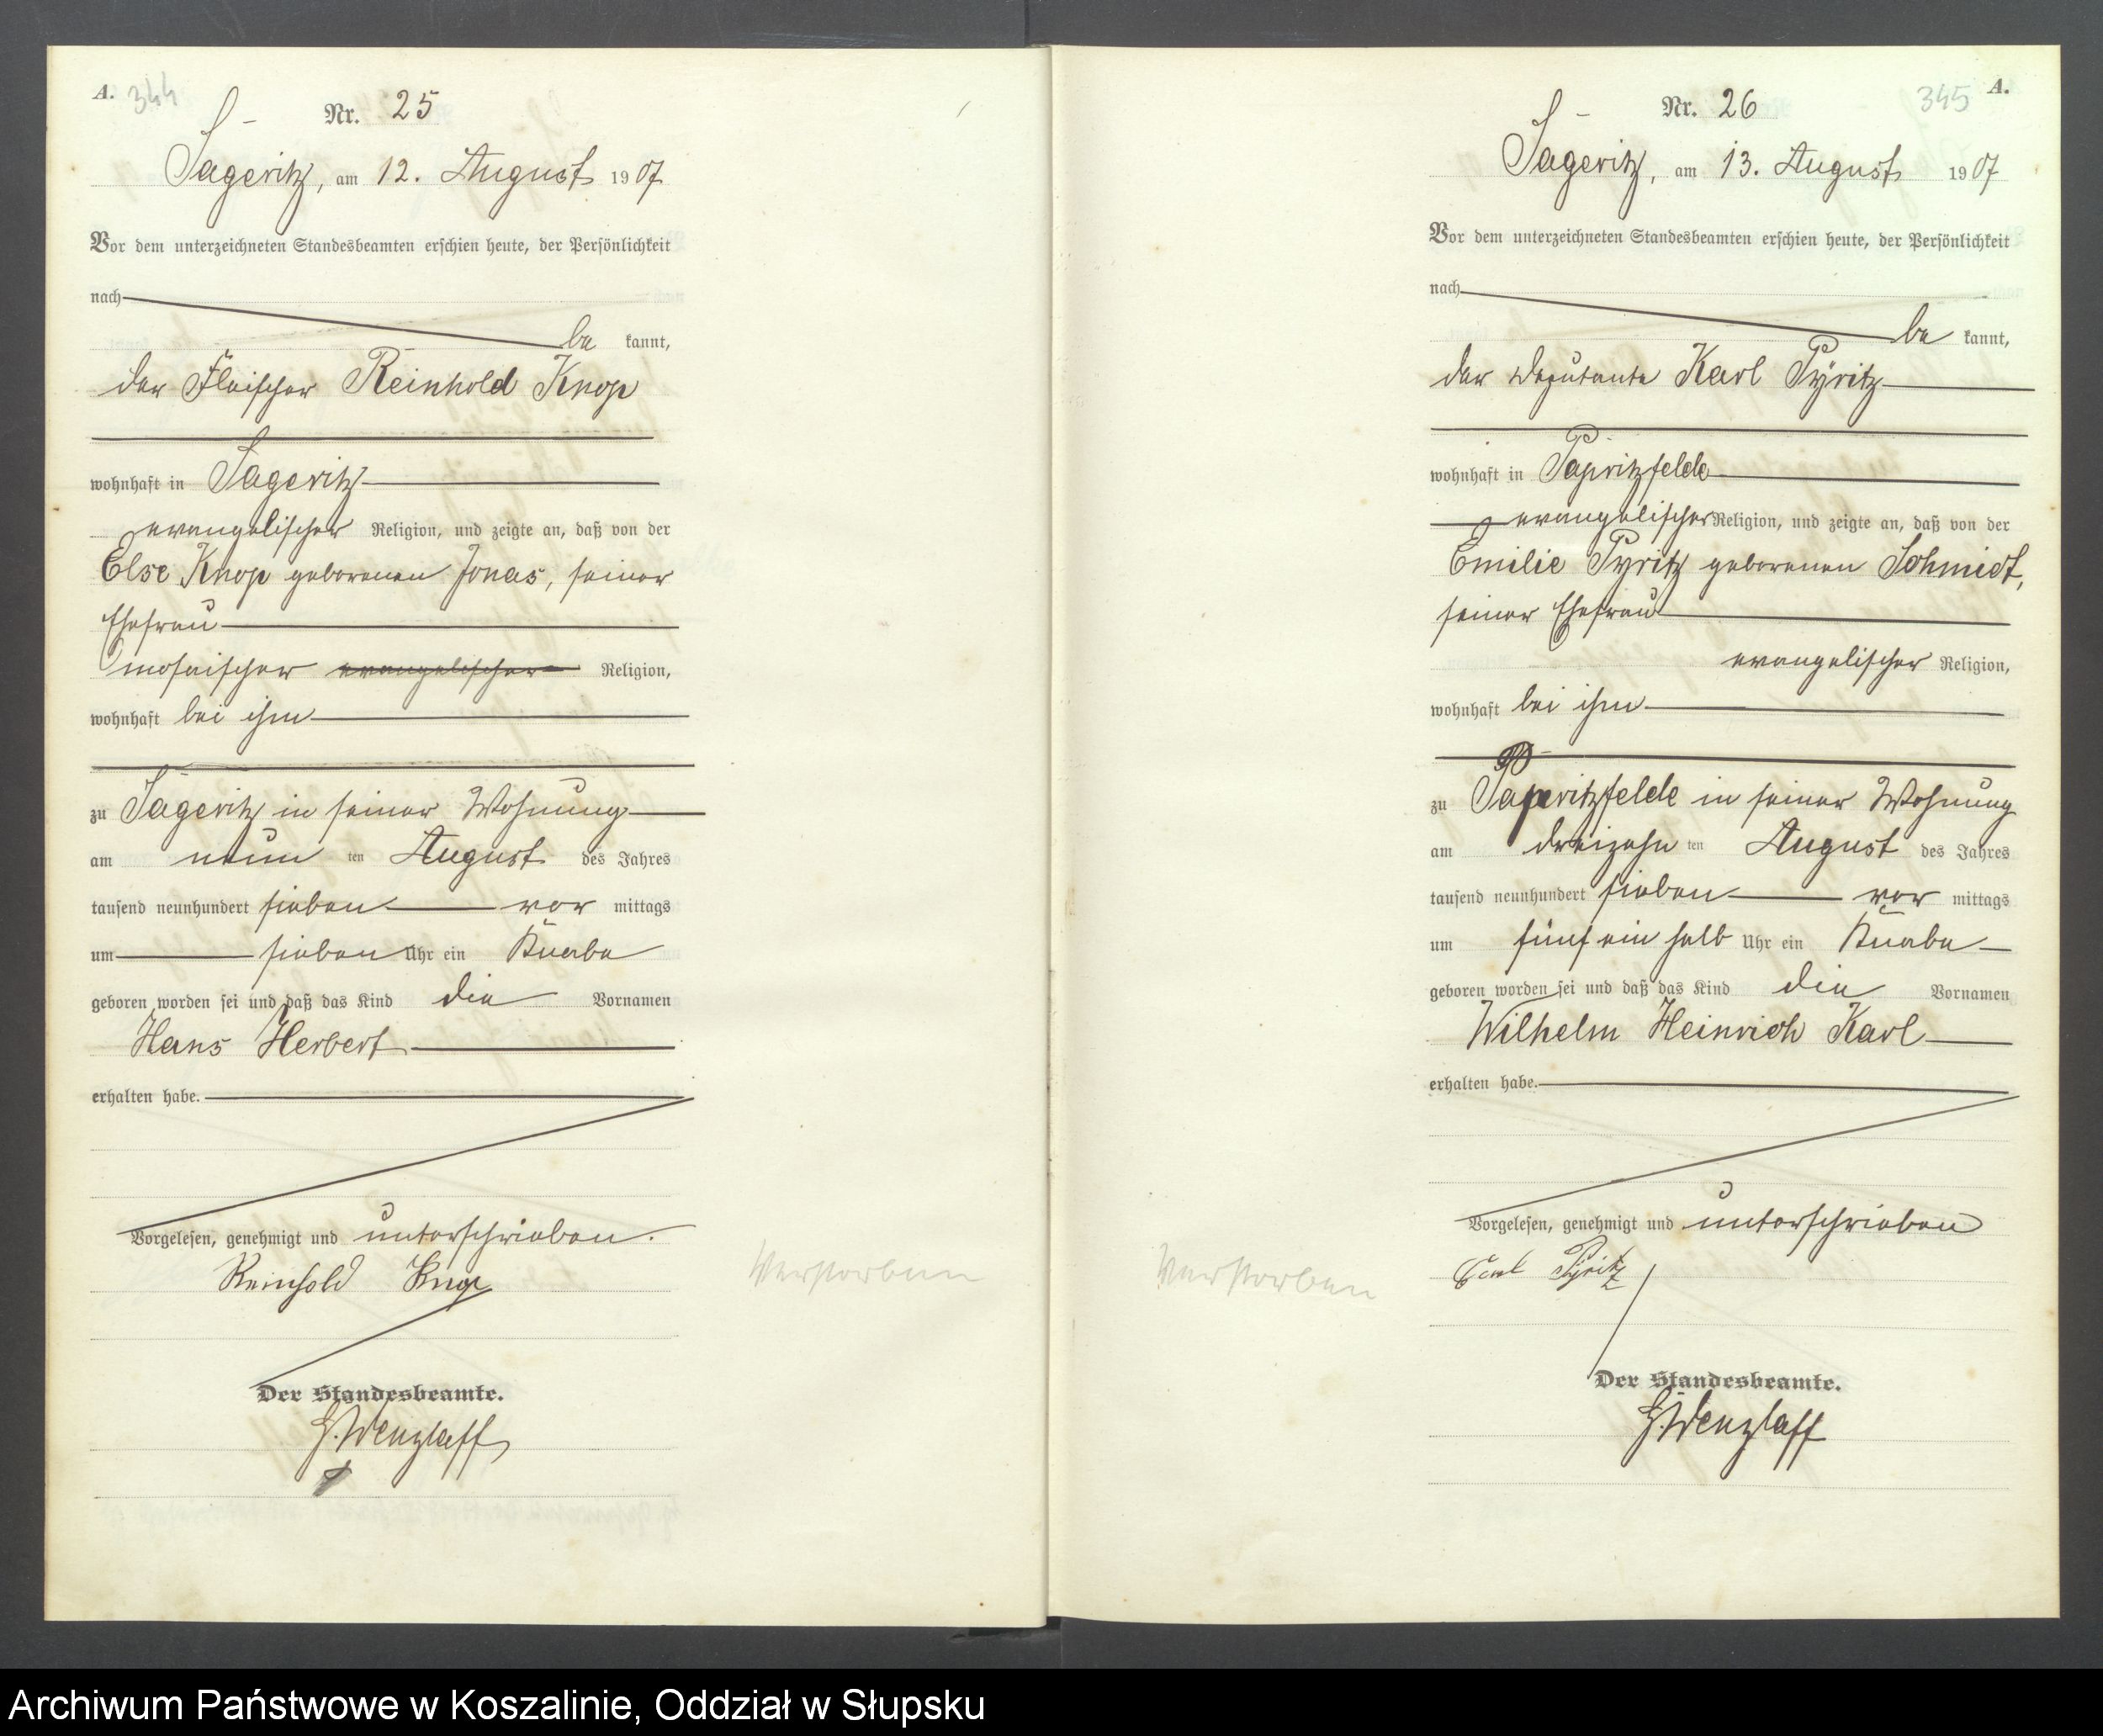 A. 344
Nr. 25
Sageritz, am 12. August 1907
Vor dem unterzeichneten Standesbeamten erschien heute, der Persönlichkeit
nach
be kannt,
der Fleischer Reinhold Knop
wohnhaft in Sageritz
evangelischer Religion, und zeigte an, daß von der
Else Knop geborenen Jonas, seiner
Ehefrau
mosaischer evangelischer Religion,
wohnhaft bei ihm
zu Sageritz in seiner Wohnung
am neun ten August des Jahres
tausend neunhundert sieben vor mittags
um sieben Uhr ein Knabe
geboren worden sei und daß das Kind die Vornamen
Hans Herbert
erhalten habe.
Vorgelesen, genehmigt und unterschrieben.
Reinhold Knop
Verstorben
Der Standesbeamte.
G. Wenzlaff
345 A.
Nr. 26
Sageritz, am 13. August 1907
Vor dem unterzeichneten Standesbeamten erschien heute, der Persönlichkeit
nach
be kannt,
der Deputante Karl Pyritz
wohnhaft in Papritzfelde
evangelischer Religion, und zeigte an, daß von der
Emilie Pyritz geborenen Schmidt,
seiner Ehefrau
evangelischer Religion,
wohnhaft bei ihm
zu Papritzfelde in seiner Wohnung
am dreizehn ten August des Jahres
tausend neunhundert sieben vor mittags
um fünf ein halb Uhr ein Knabe
geboren worden sei und daß das Kind die Vornamen
Wilhelm Heinrich Karl
erhalten habe.
Vorgelesen, genehmigt und unterschrieben
Carl Pyritz
Verstorben
Der Standesbeamte.
G. Wenzlaff
Archiwum Państwowe w Koszalinie, Oddział w Słupsku